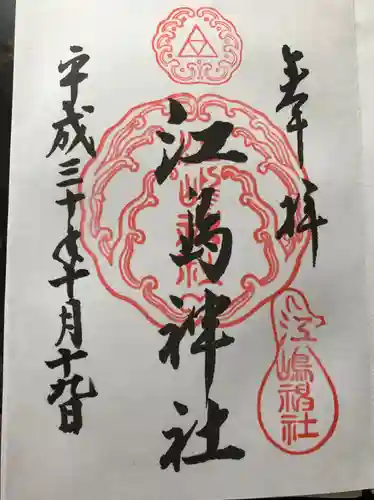 奉拝
江島神社
平成三十年十月十九日
江嶋神社